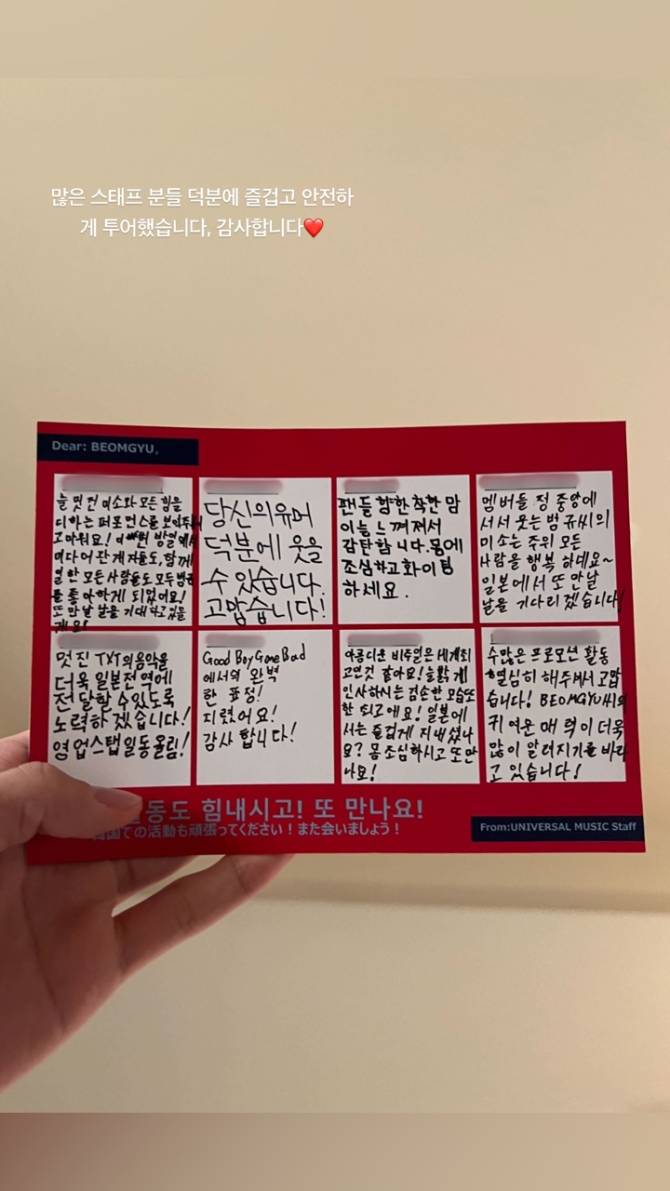 많은 스태프 분들 덕분에 즐겁고 안전하
게 투어했습니다, 감사합니다❤️
Dear: BEOMGYU.
늘 멋진 미소와 모든 힘을
다하는 퍼포먼스를 보여주셔
고마워요! 이 방일에서
미디어 관계자들도, 함께
일한 모든 사람들도 모두 범규
를 좋아하게 되었어요!
또 만날 날을 기대하고 있을
게요!
당신의 유머
덕분에 웃을
수 있습니다.
고맙습니다!
팬들 향한 착한 맘
이 늘 느껴져서
감탄합니다. 몸에
조심하고 화이팅
하세요.
멤버들 정 중앙에
서서 웃는 범규씨의
미소는 주위 모든
사람을 행복 하데요~
일본에서 또 만날
날을 기다리겠습니다!
멋진 TXT의 음악을
더욱 일본전역에
전달할 수 있도록
노력하겠습니다!
영업스탭일동올림!
Good Boy Gone Bad
에서의 완벽
한 표정!
지렸어요!
감사합니다!
아름다운 비주얼은 세계최
고인것 같아요! 늘 밝게
인사하시는 겸손한 모습또
한 최고에요! 일본에
서는 즐겁게 지내셨나
요? 몸 조심하시고 또만
나요!
수많은 프로모션 활동
열심히 해주셔서 고맙
습니다! BEOMGYU씨의
귀여운 매력이 더욱
많이 알려지기를 바라
고 있습니다!
동도 힘내시고! 또 만나요!
国での活動も頑張ってください！また会いましょう！
From:UNIVERSAL MUSIC Staff